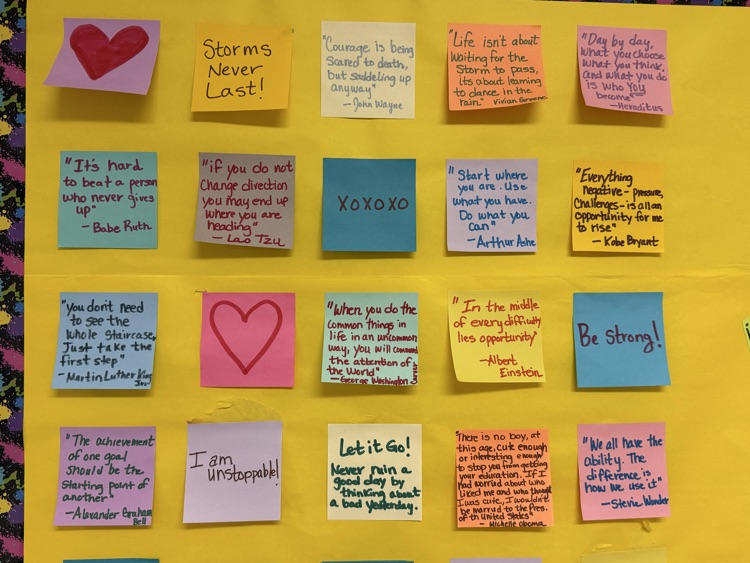 Storms
Never
Last!
"Courage is being
scared to death,
but saddling up
anyway"
- John Wayne
"Life isn't about
Waiting for the
Storm to pass,
its about learning
to dance in the
rain." Vivian Greene
"Day by day,
what you choose
what you think,
and what you do
is who you
become"
- Heraclitus
"It's hard
to beat a person
who never gives
up"
- Babe Ruth
"if you do not
Change direction
you may end up
where you are
heading"
- Lao Tzu
XOXOXO
"Start where
you are. Use
what you have.
Do what you
can"
- Arthur Ashe
"Everything
negative - pressure,
Challenges - is all an
opportunity for me
to rise"
- Kobe Bryant
"you don't need
to see the
whole Staircase,
Just take the
first step"
- Martin Luther King
Jr.
"When you do the
Common things in
life in an uncommon
way, you will command
the attention of
the World"
- George Washington Carver
"In the middle
of every difficulty
lies opportunity"
- Albert
Einstein
Be strong!
"The achievement
of one goal
should be the
starting point of
another"
- Alexander Graham
Bell
I am
unstoppable!
Let it Go!
Never ruin a
good day by
thinking about
a bad yesterday.
"There is no boy, at
this age, cute enough
or interesting enough
to stop you from getting
your education. If I
had worried about who
liked me and who thought
I was cute, I wouldn't
be married to the Pres.
of th United States"
- Michelle Obama
"We all have the
ability. The
difference is
how we use it"
- Stevie Wonder